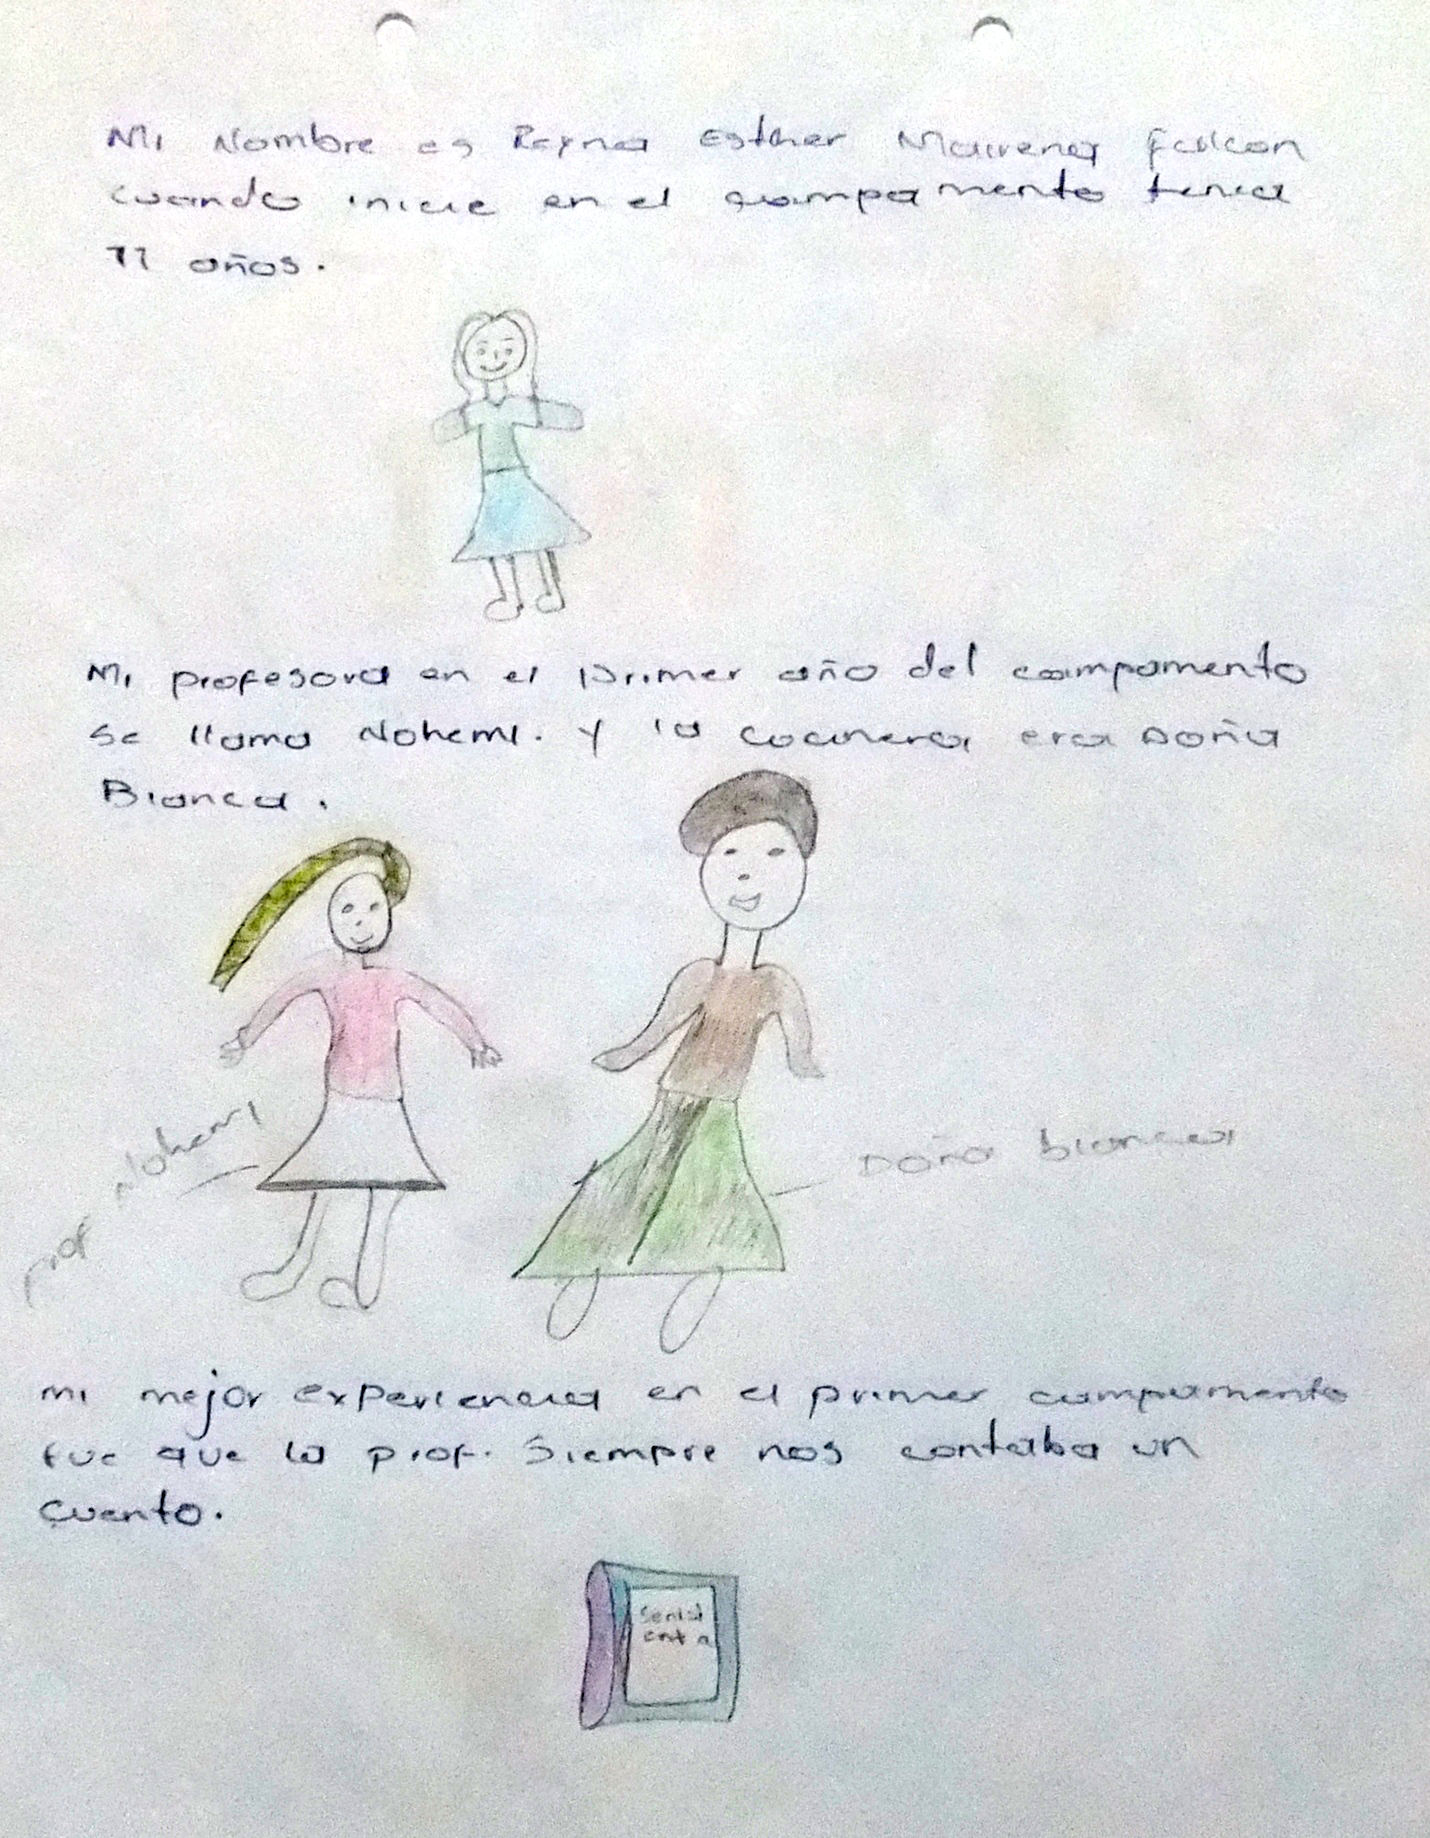 Mi Nombre es Reyna Esther Mairena Falcon
cuando inicie en el campamento tenia
11 años.
Mi profesora en el primer año del campamento
se llama Nohemi. y la cocinera era Doña
Bianca.
prof Nohemi
Doña bianca
mi mejor experiencia en el primer campamento
fue que la prof. Siempre nos contaba un
cuento.